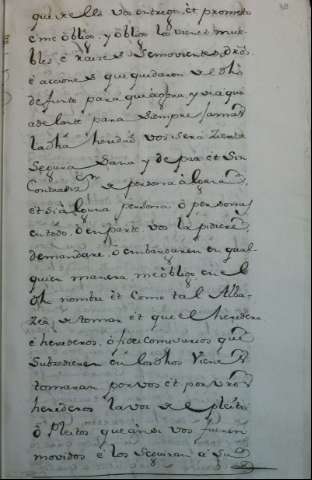 que de ellos vos entrego, et prometo
é me oblígo, y óblígo los víenes mue-
bles é raízes Semovientes, dros
é accíones que quedaron de el dho
defunto para que aóora, y de a quí
adelante para Siempre Jamas
la dha heredad vos será Zíerta
Segura Sana y de paz et Sin
Contradizn de persona álguna,
et Sí álguna persona ó personas
en todo, ó en parte vos la pídieren,
demandaren, ó embargaren en qual-
quíer manera me óblígo en el
dho nombre et Como tal Alba-
Zea, de tomar et que el heredero
é herederos, ó fideícomisarios que
Subzedieren en los dhos Vienes
tomaran por vos et por vros
herederos la voz de el pleíto
ó Pleítos que ansi vos fueren
movidos é los Seguiran á Su